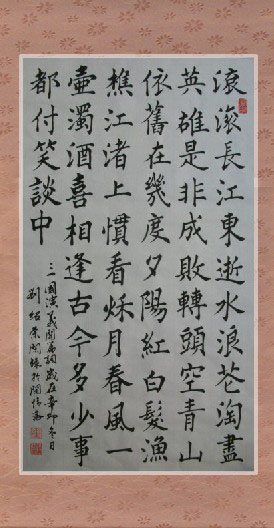 滾滾長江東逝水浪花淘盡
英雄是非成敗轉頭空青山
依舊在幾度夕陽紅白髮漁
樵江渚上慣看秋月春風一
壺濁酒喜相逢古今多少事
都付笑談中
三國演義開篇詞歲在辛卯冬月
劉紹榮